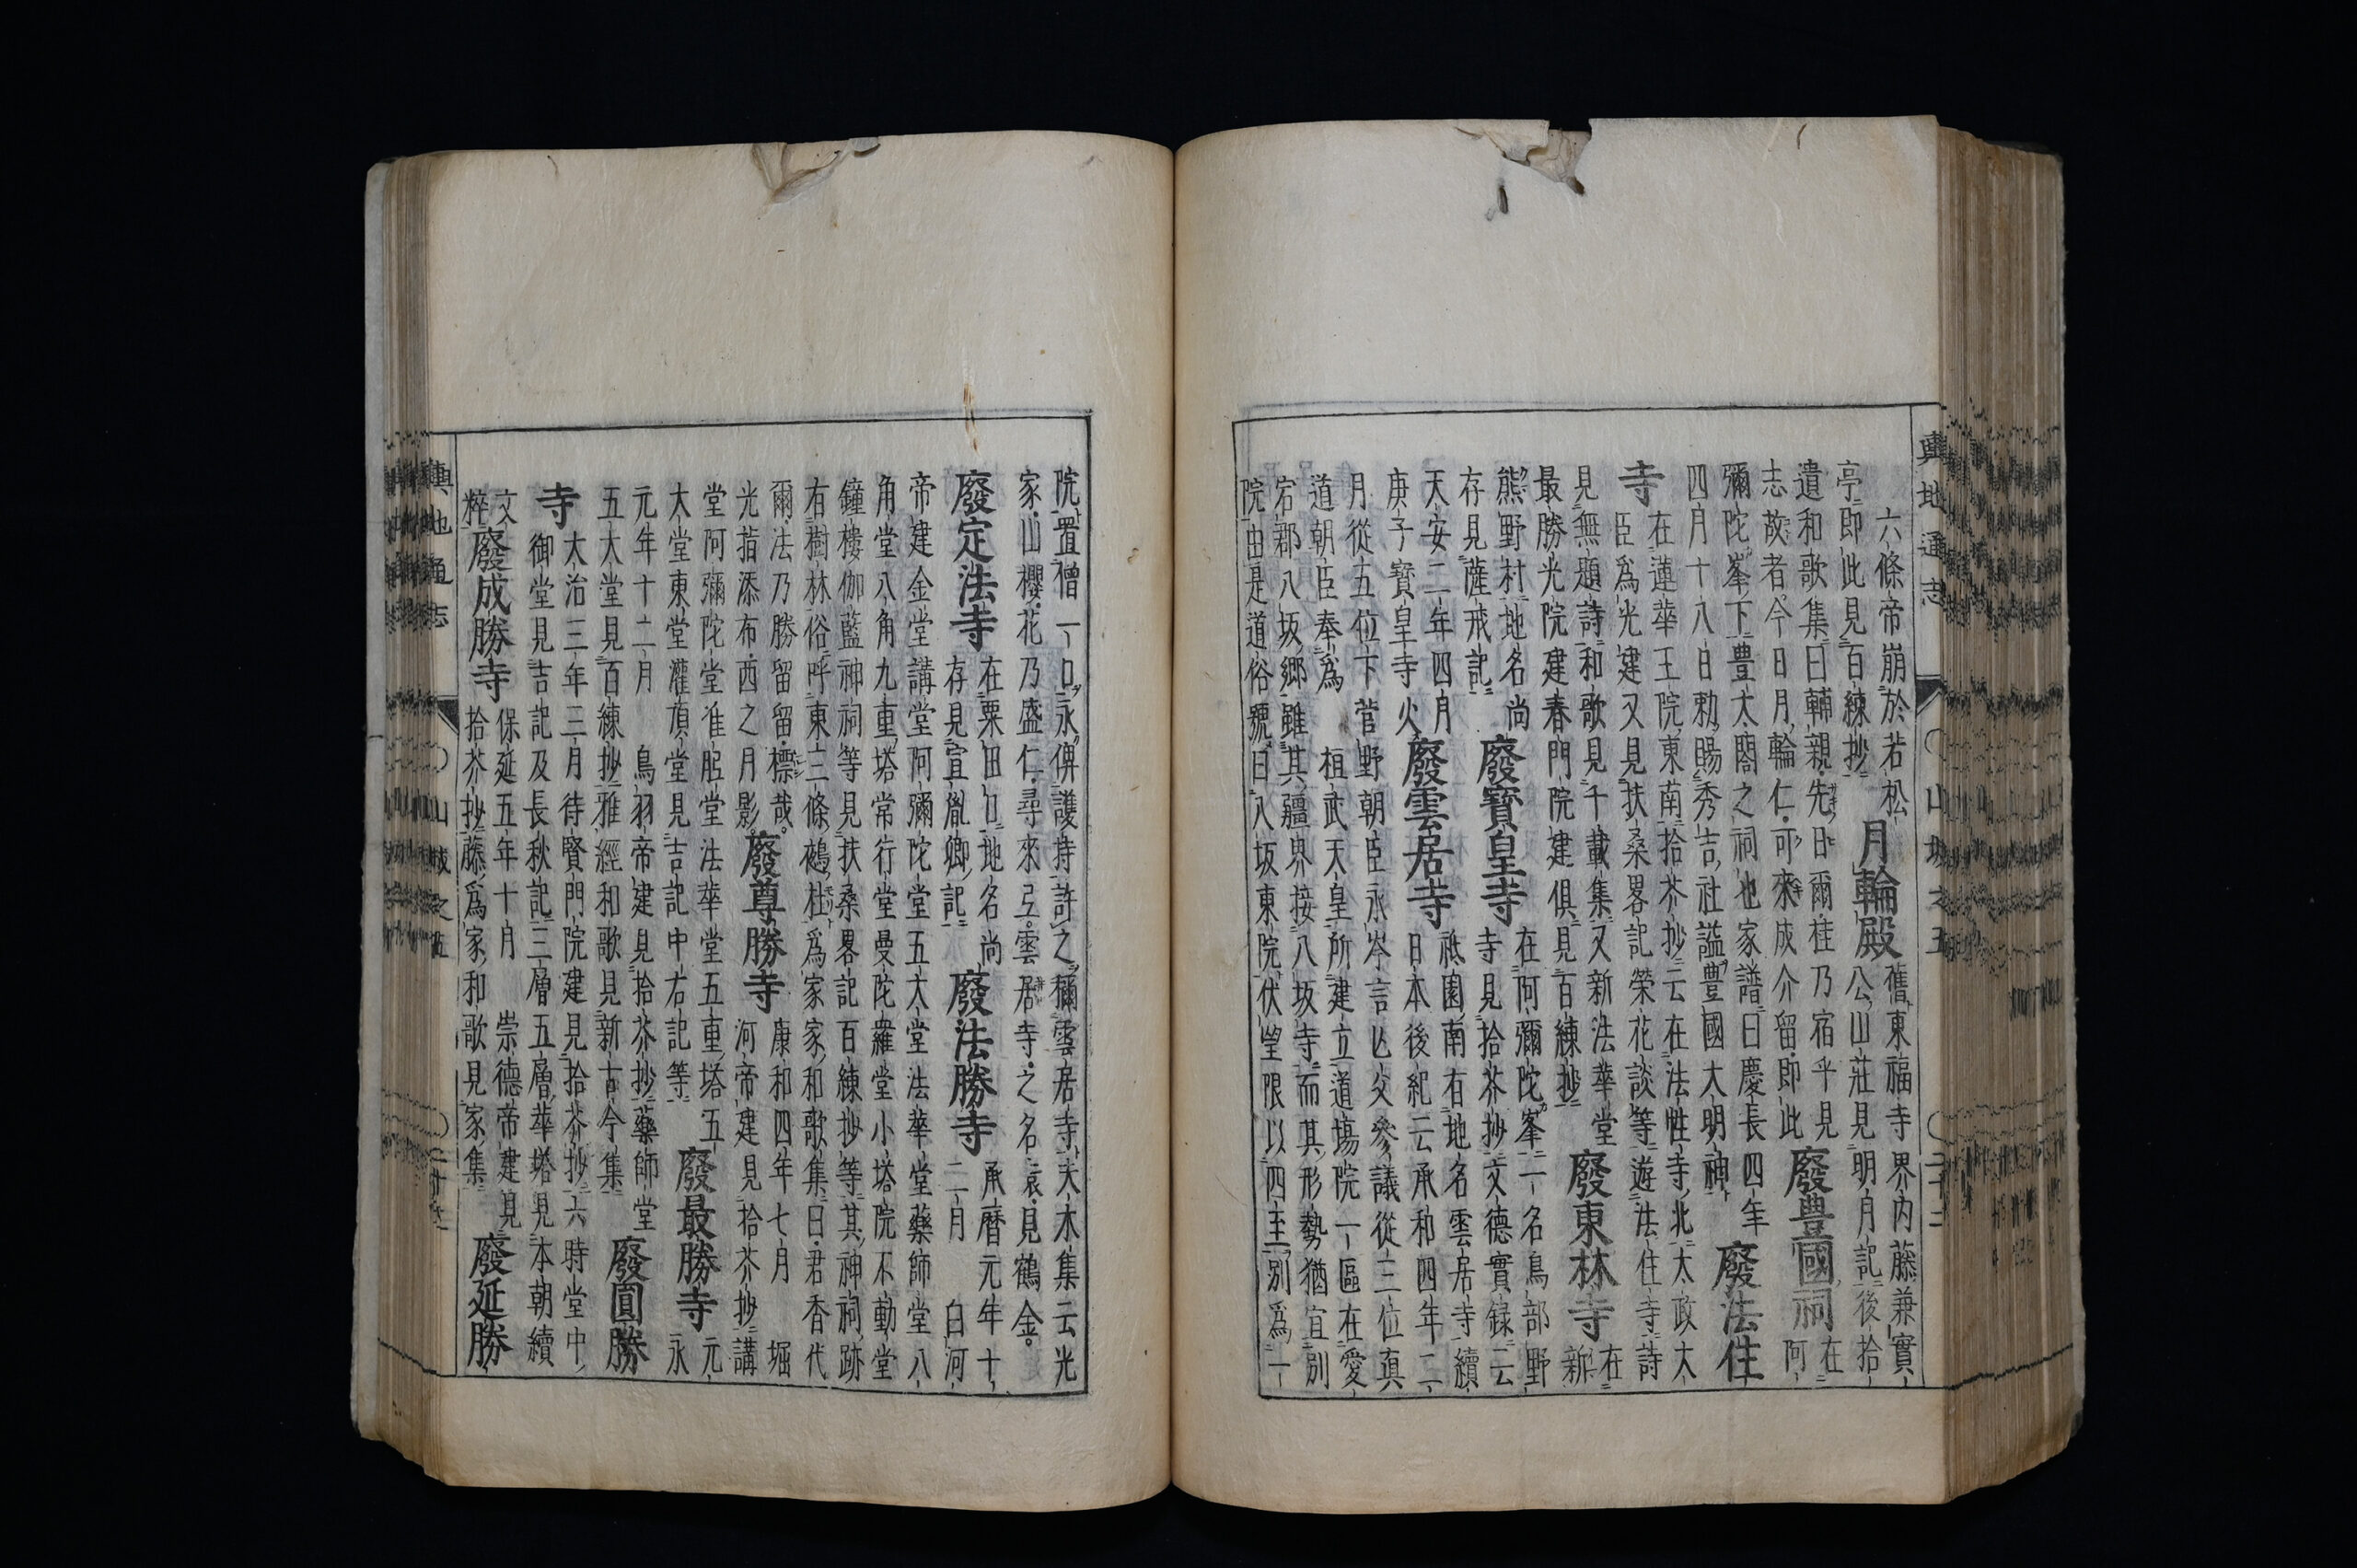 輿地通志 山城之五 二十三
六條帝崩於若松
亭即此見百練抄
月輪殿
舊東福寺界內藤兼實
公山莊見明月記後拾
遺和歌集曰輔親先日爾桂乃宿乎見
志故者今日月輪仁可來成介留即此
廢豊國祠
在
阿
彌陀峯下豊太閤之祠也家譜曰慶長四年
四月十八日勅賜秀吉社謚豊國大明神
廢法住
寺
在蓮華王院東南拾芥抄云在法性寺北太政大
臣爲光建又見扶桑畧記榮花談等遊法住寺詩
見無題詩和歌見千載集又新法華堂
最勝光院建春門院建俱見百練抄
廢東林寺
在
新
熊野村地名尚
存見薩戒記
廢寶皇寺
在阿彌陀峯一名鳥部野
寺見拾芥抄文德實録云
天安二年四月
庚子寶皇寺火
廢雲居寺
祇園南有地名雲居寺續
日本後紀云承和四年二
月從五位下菅野朝臣永岑言亡父參議從三位真
道朝臣奉爲 桓武天皇所建立道場院一區在愛
宕郡八坂鄉雖其疆界接八坂寺而其形勢猶宜別
院由是道俗號曰八坂東院伏望限以四至別爲一
院置僧一口永俾護持許之稱雲居寺夫木集云光
家山櫻花乃盛仁尋來弖雲居寺之名哀見鶴金
廢定法寺
在粟田口地名尚
存見宣胤卿記
廢法勝寺
承曆元年十
二月 白河
帝建金堂講堂阿彌陀堂五大堂法華堂藥師堂八
角堂八角九重塔常行堂曼陀羅堂小塔院不動堂
鐘樓伽藍神祠等見扶桑畧記百練抄等其神祠跡
右樹林俗呼東三條鵺杜爲家家和歌集曰君香代
爾法乃勝留留標哉
光指添布西之月影
廢尊勝寺
康和四年七月 堀
河帝建見拾芥抄講
堂阿彌陀堂准胝堂法華堂五重塔五
大堂東堂灌頂堂見吉記中右記等
廢最勝寺
元
永
元年十二月 鳥羽帝建見拾芥抄藥師堂
五大堂見百練抄雅經和歌見新古今集
廢圓勝
寺
太治三年三月待賢門院建見拾芥抄六時堂中
御堂見吉記及長秋記三層五層華塔見本朝續
文
粹
廢成勝寺
保延五年十月 崇德帝建見
拾芥抄藤爲家和歌見家集
廢延勝
輿地通志 山城之五